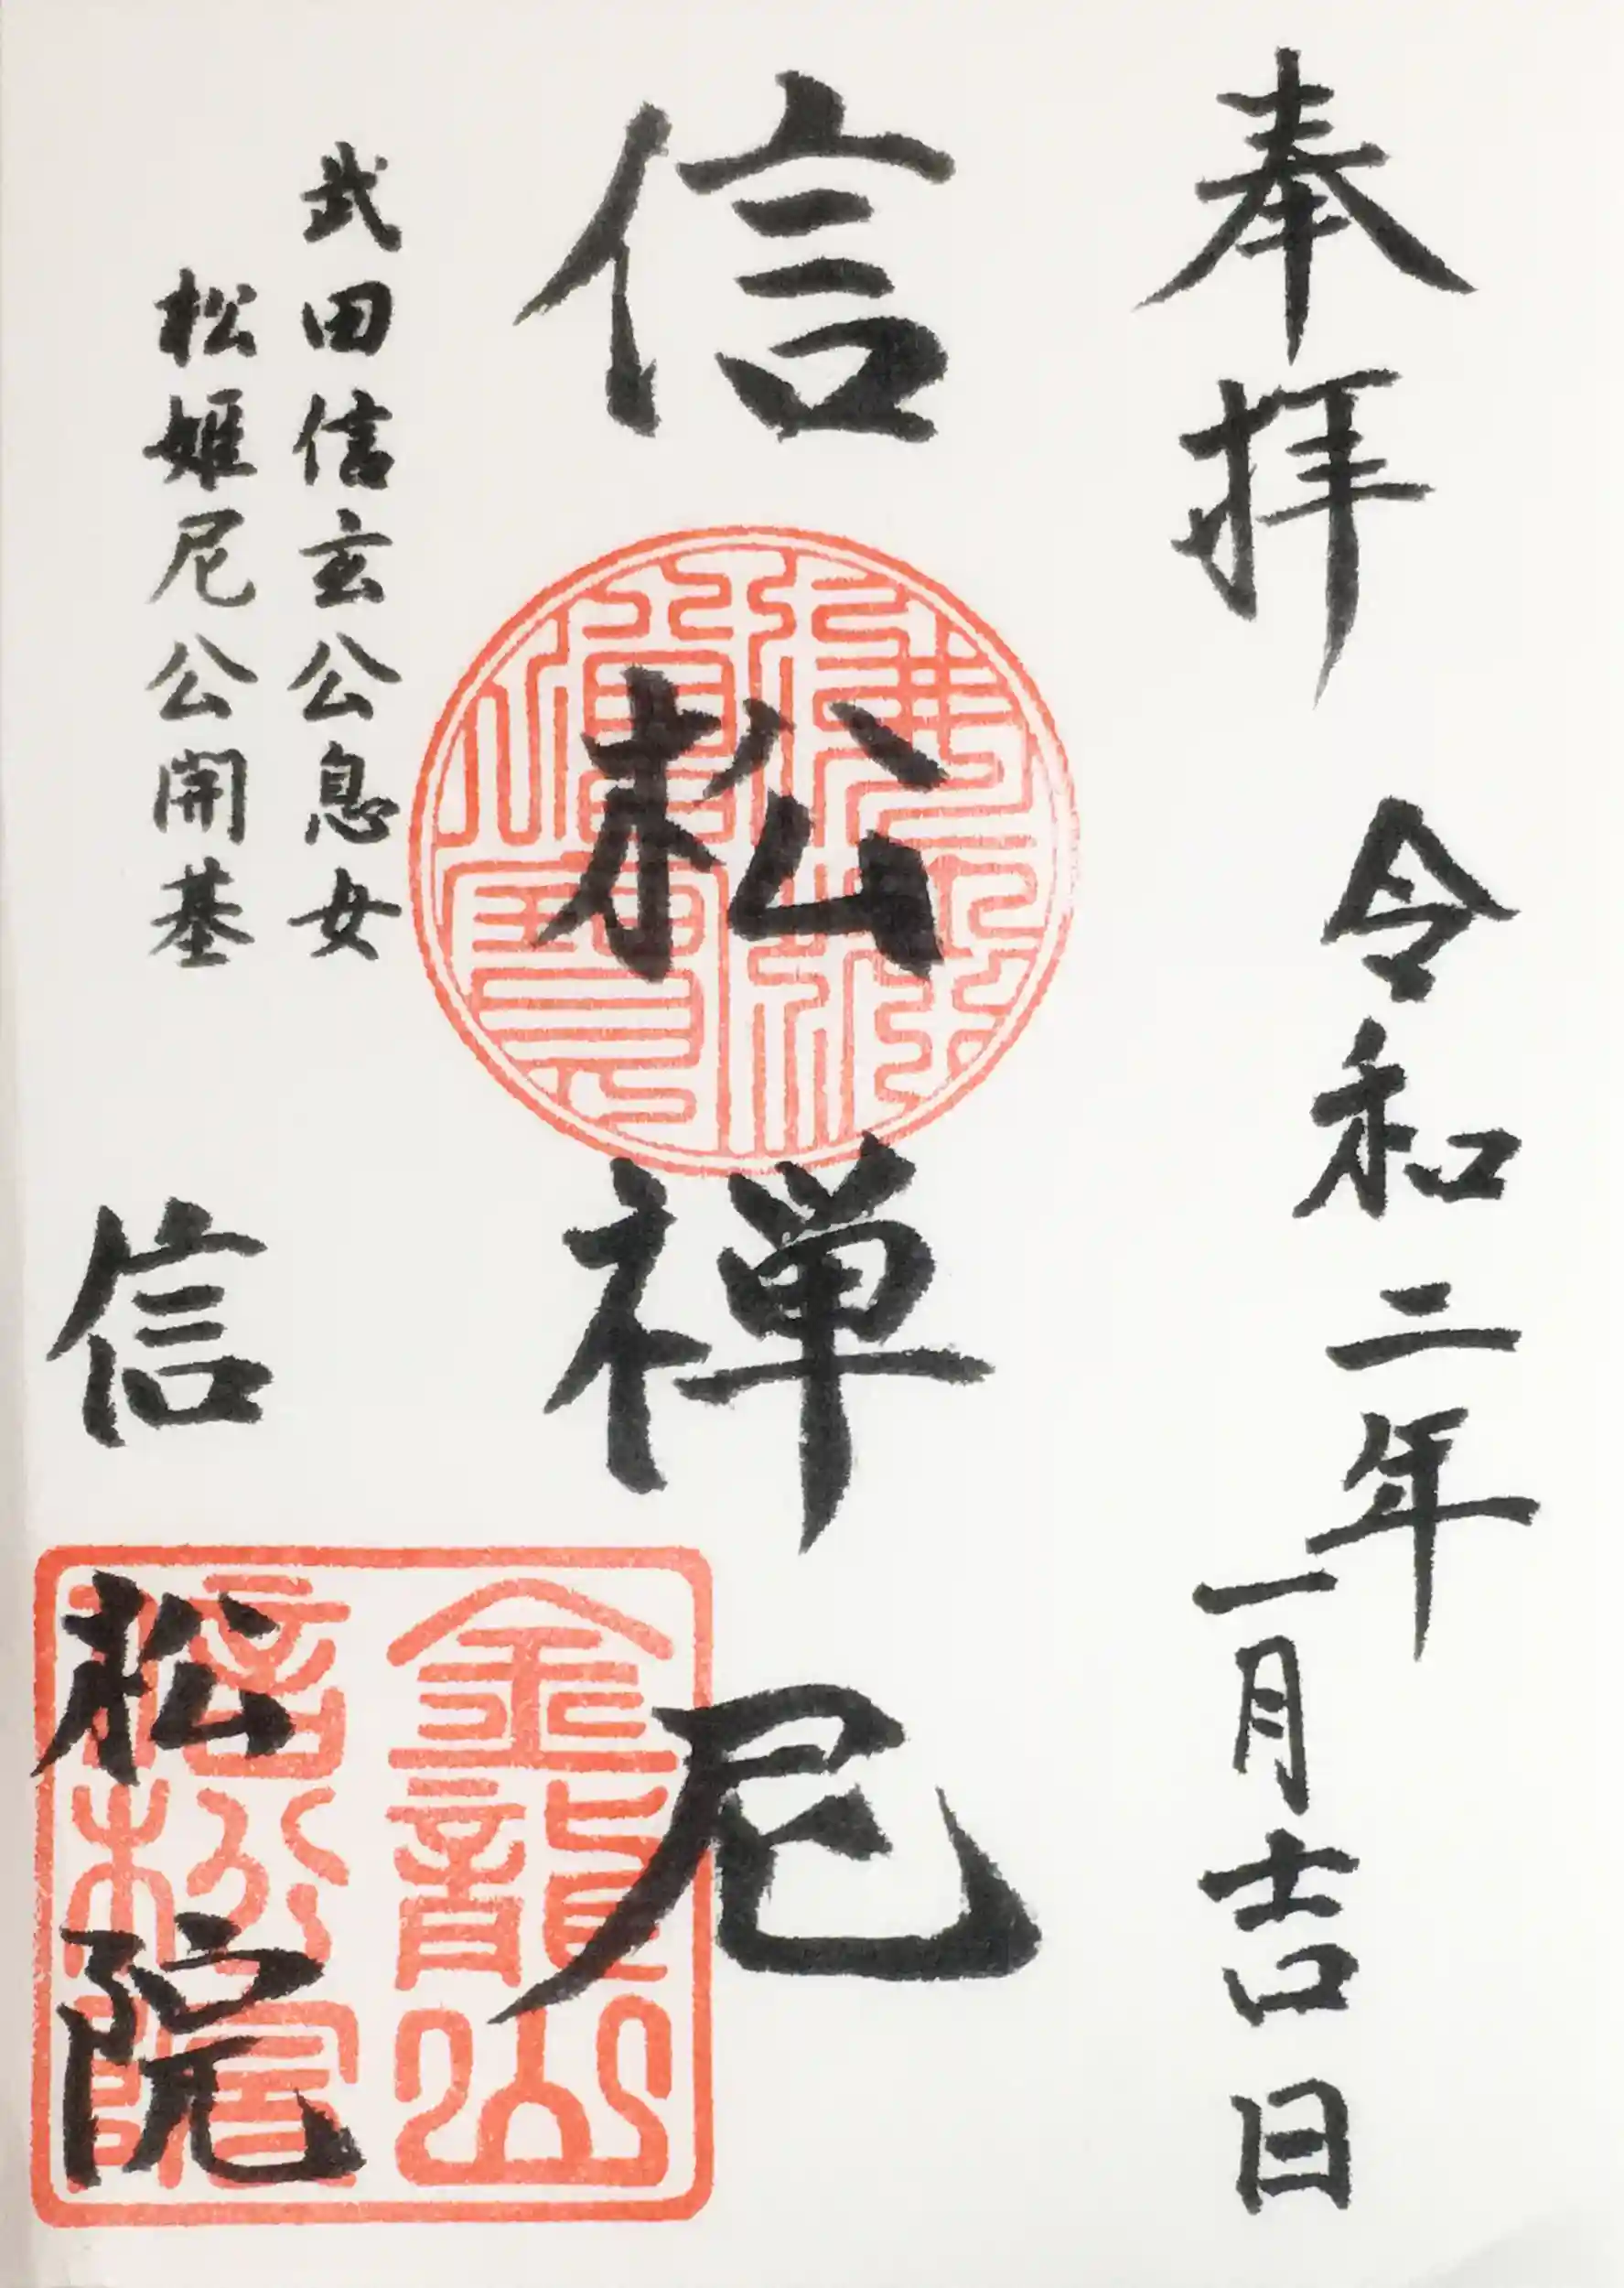 奉拝
令和二年
一月吉日
信松禅尼
武田信玄公息女
松姫尼公開基
信松院
金龍山
信松院